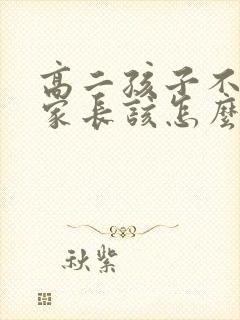 高二孩子不
家长该怎麼
秋紫